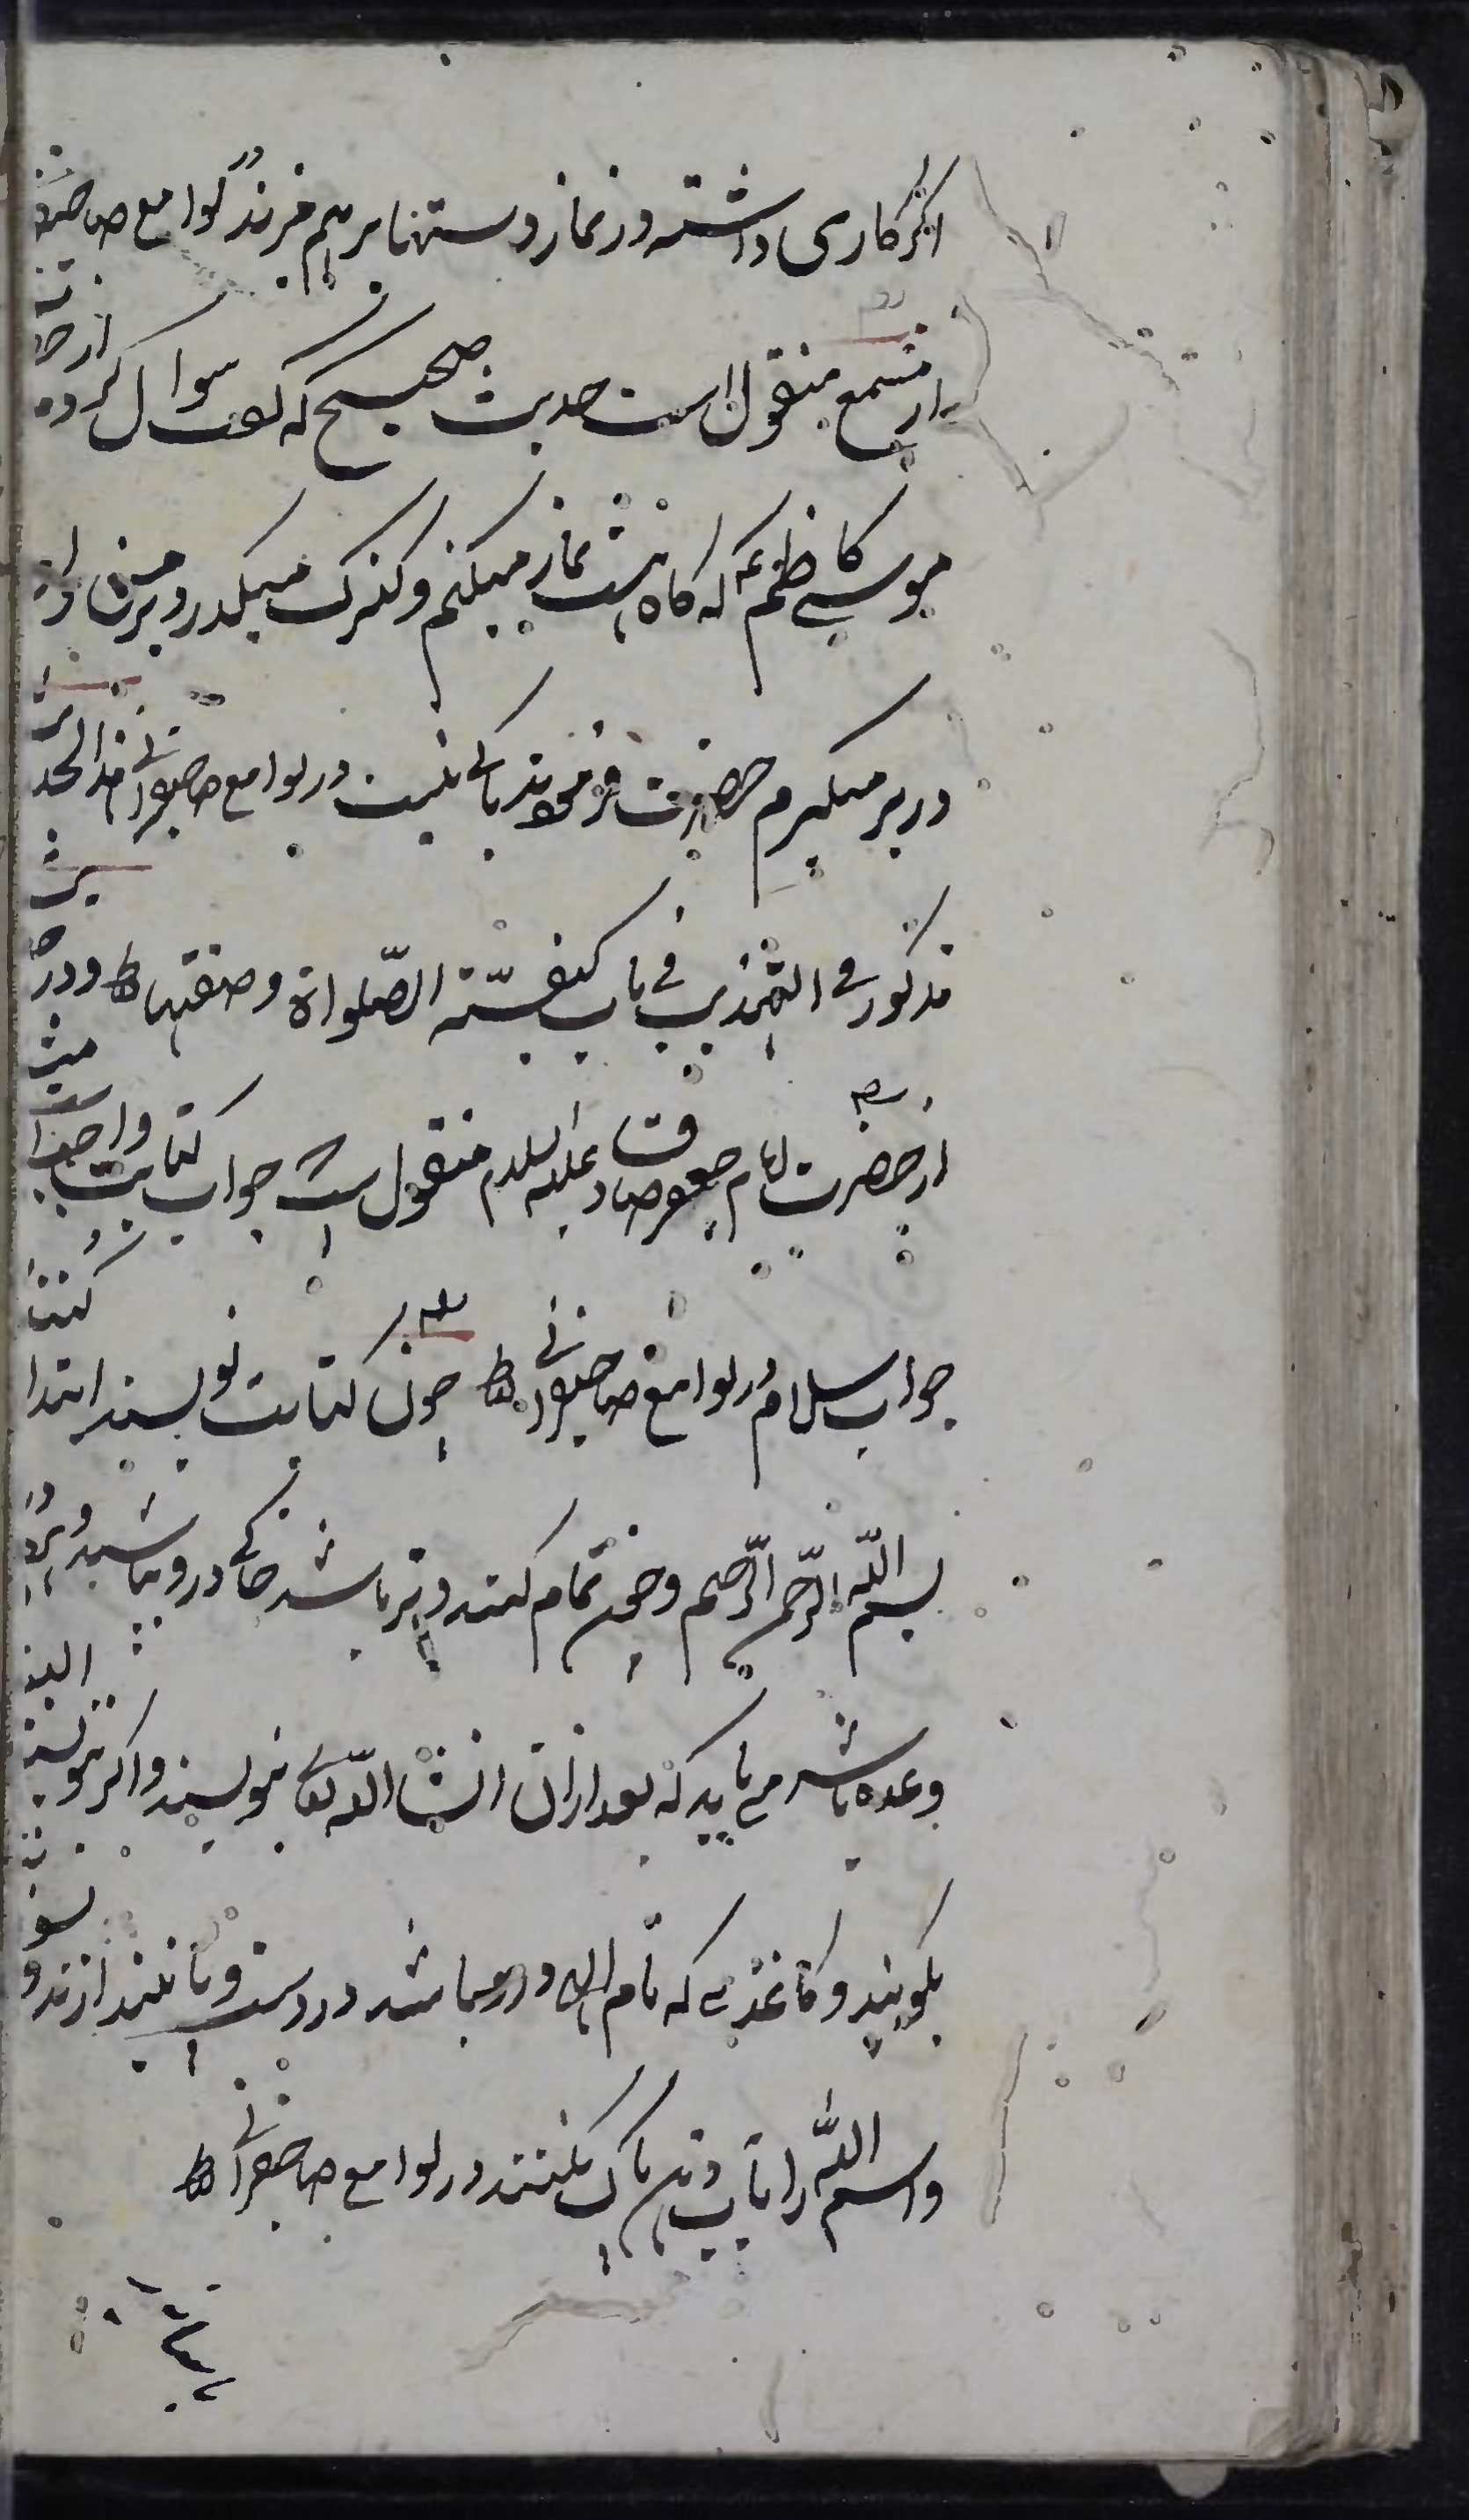 اکر کاری داشته در نماز دستها بر هم زند در لوامع صاحبقرانی
از مسمع منقول است حدیث صحیح که کفت سوال کردم از حضرت
موسی کاظم ع که کاه هست نماز میکنم و کنیزک میکذرد و من او را
در بر میکیرم حضرت فرمودند باکی نیست در لوامع صاحبقرانی هذا الحدیث
مذکور فی التهذیب فی باب کیفیّة الصّلواة وصفتها ط و در حدیث
از حضرت امام جعفر صادق علیه السلام منقول است جواب کتابت واجب است
جواب سلام در لوامع صاحبقرانی ط چون کتابت نویسند ابتدا کنند
بسم اللّه الرّحمن الرّحیم و چون تمام کنند و تر باشد خاک درو پاشند و
وعده باشد می باید که بعد از ان انشا اللّه تعالی بنویسند و اکر ننویسند
بکویند و کاغذی که نام الهی درو باشد در دست و پا نیندازند و
واسم اللّه را باب دهن پاک نکنند در لوامع صاحبقرانی ط